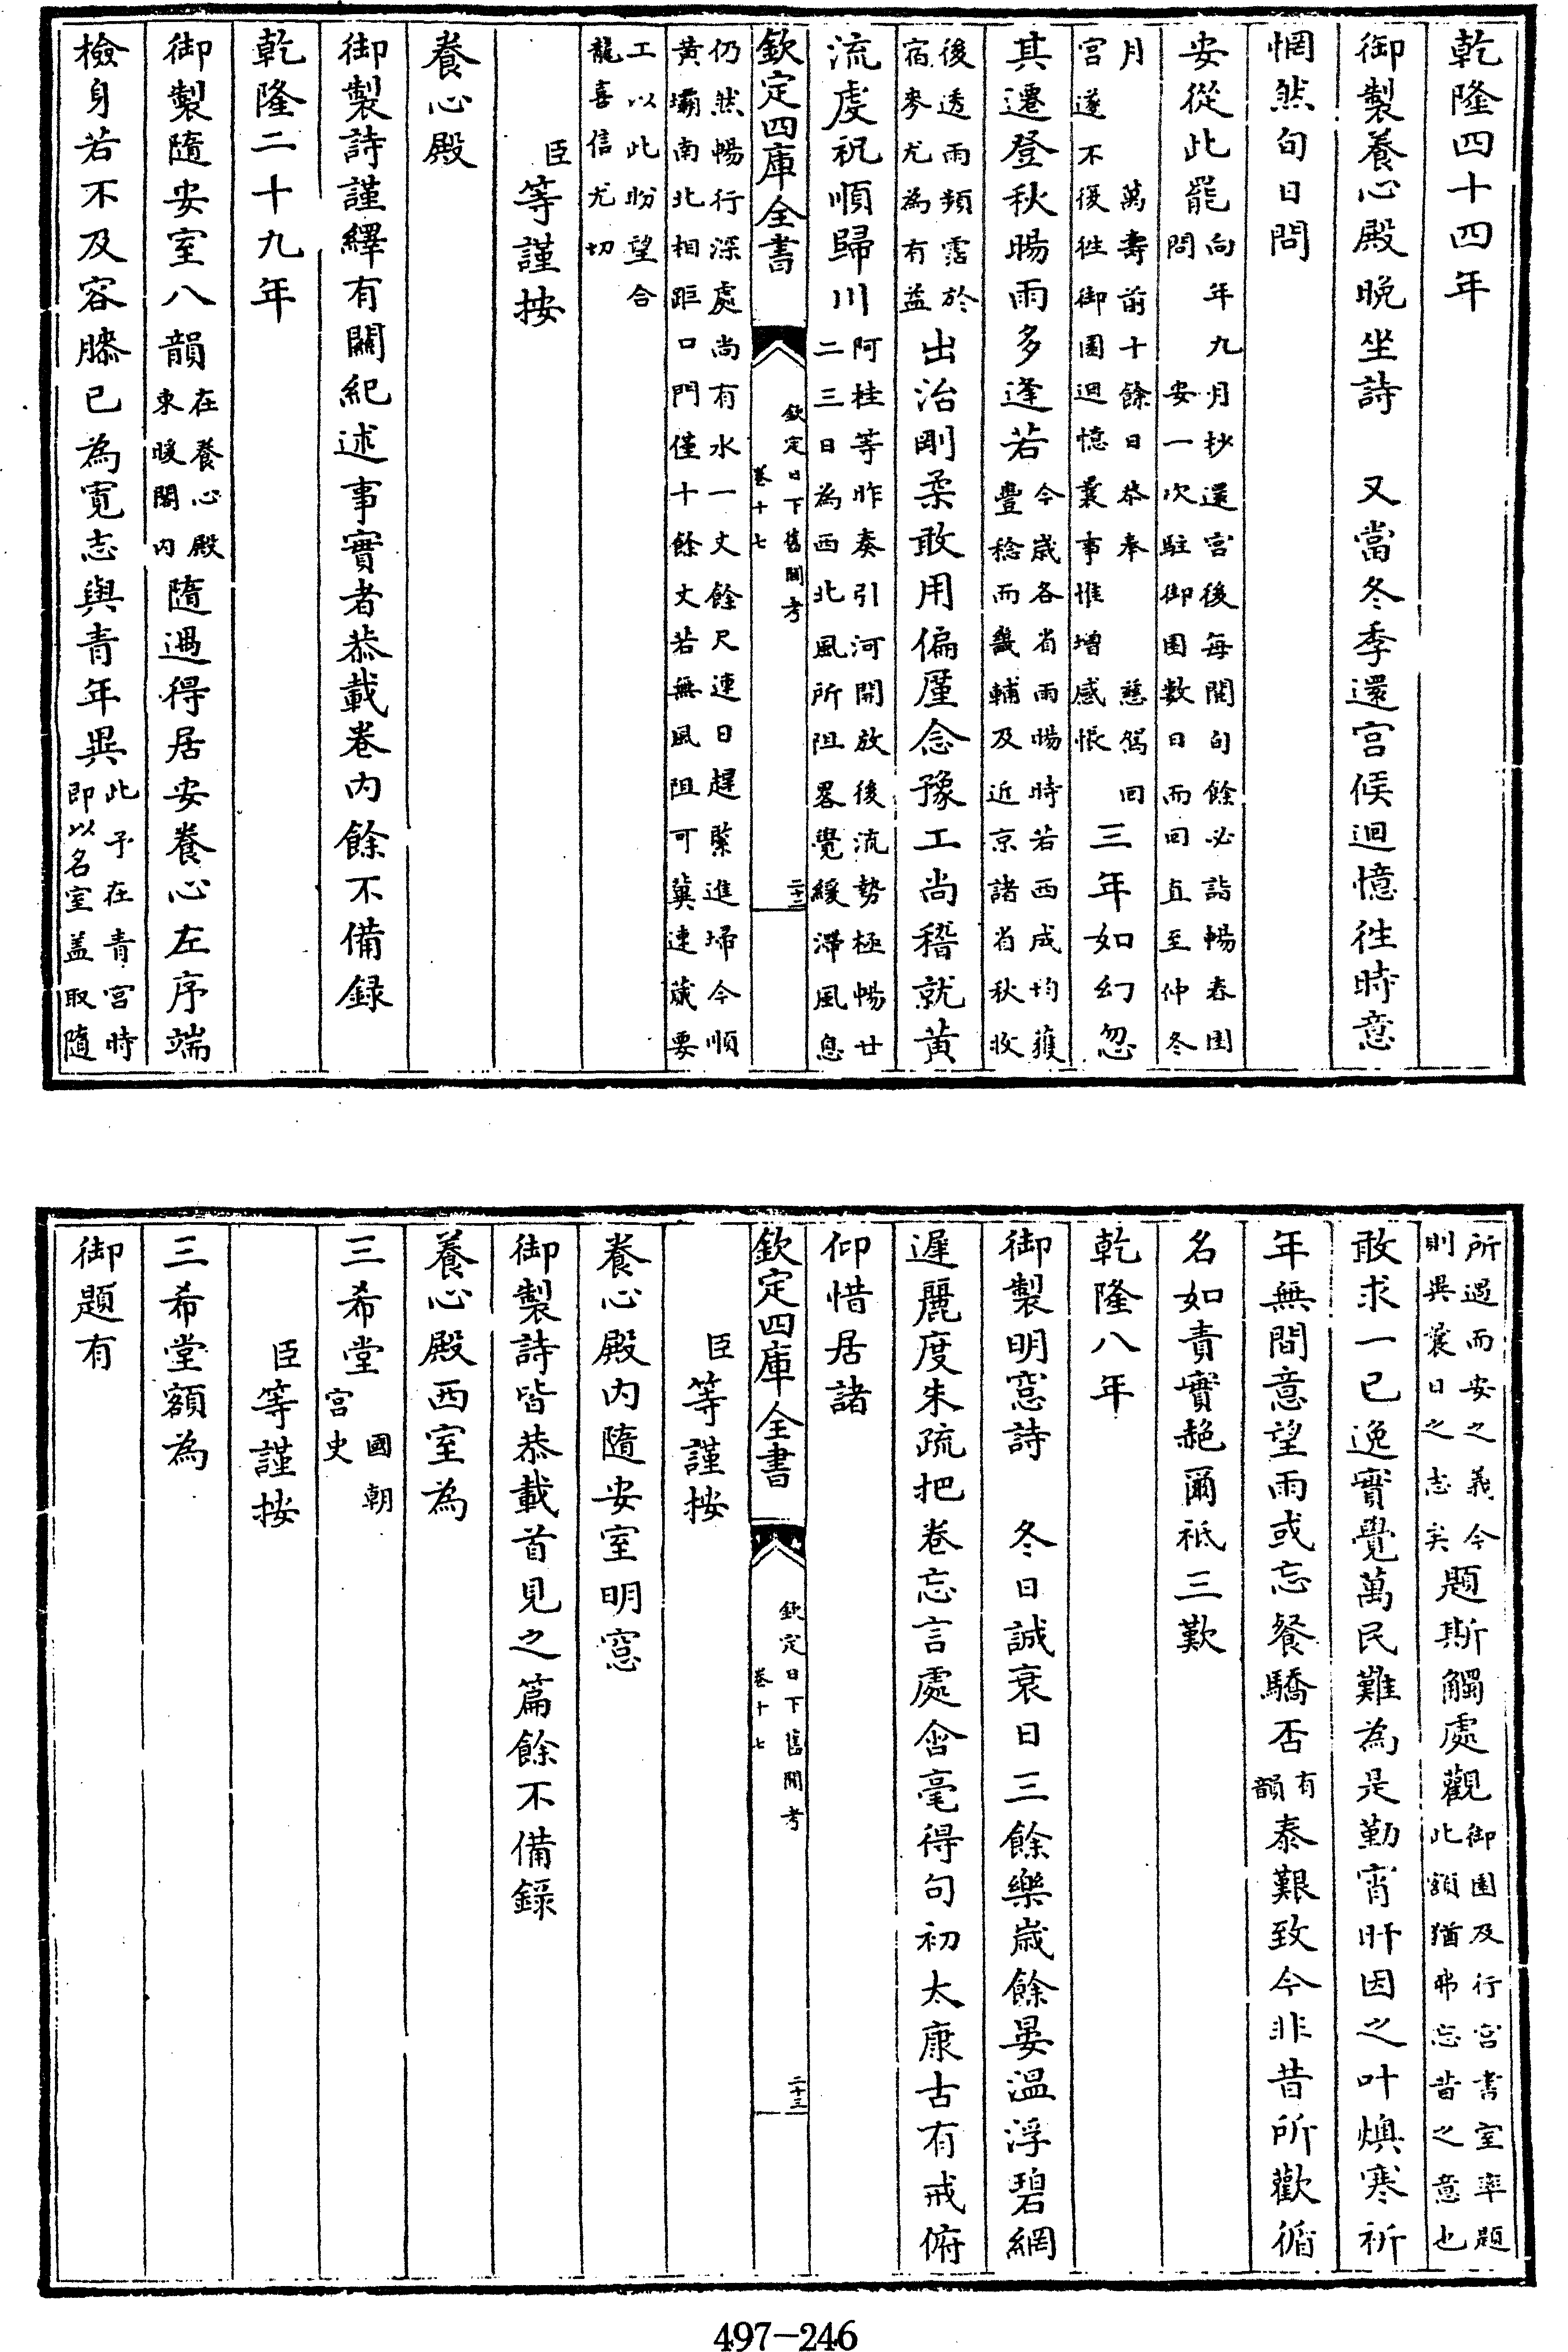 乾隆四十四年
御製養心殿晚坐詩　又當冬季還宮候迴憶徃時意
惘然旬日問
安從此罷向年九月抄還宮後每閲旬餘必詣暢春園
問　安一次駐御園數日而回直至仲冬
月　萬壽前十餘日恭奉　慈駕回
宮遂不復徃御園迴憶曩事惟增感悵三年如幻忽
其遷登秋暘雨多逢若今歲各省雨暘時若西成均獲
豐稔而畿輔及近京諸省秋收
後透雨頻霑於
宿麥尤為有益出治剛柔敢用偏廑念豫工尚稽就黃
流虔祝順歸川阿桂等昨奏引河開放後流勢極暢廿
二三日為西北風所阻畧覺緩滯風息
欽定四庫全書　欽定日下舊聞考
卷十七　二十二
仍然暢行深處尚有水一丈餘尺連日趕緊進埽今順
黃壩南北相距口門僅十餘丈若無風阻可冀速蕆要
工以此盼望合
龍喜信尤切
臣等謹按
養心殿
御製詩謹繹有關紀述事實者恭載卷内餘不備録
乾隆二十九年
御製隨安室八韻在養心殿
東暖閣内隨遇得居安養心左序端
檢身若不及容膝已為寛志與青年異此予在青宮時
即以名室盖取隨
所遇而安之義今
則異曩日之志矣題斯觸處觀御園及行宮書室率題
此額猶弗忘昔之意也
敢求一已逸實覺萬民難為是勤宵旰因之叶燠寒祈
年無間意望雨或忘餐驕否有
韻泰艱致今非昔所歡循
名如責實赧爾祗三歎
乾隆八年
御製明窓詩　冬日誠衰日三餘樂歲餘晏温浮碧網
遲麗度朱疏把卷忘言處含毫得句初太康古有戒俯
仰惜居諸
欽定四庫全書　欽定日下舊聞考
卷十七　二十三
臣等謹按
養心殿内隨安室明窓
御製詩皆恭載首見之篇餘不備録
養心殿西室為
三希堂國朝
宮史
臣等謹按
三希堂額為
御題有
497-246